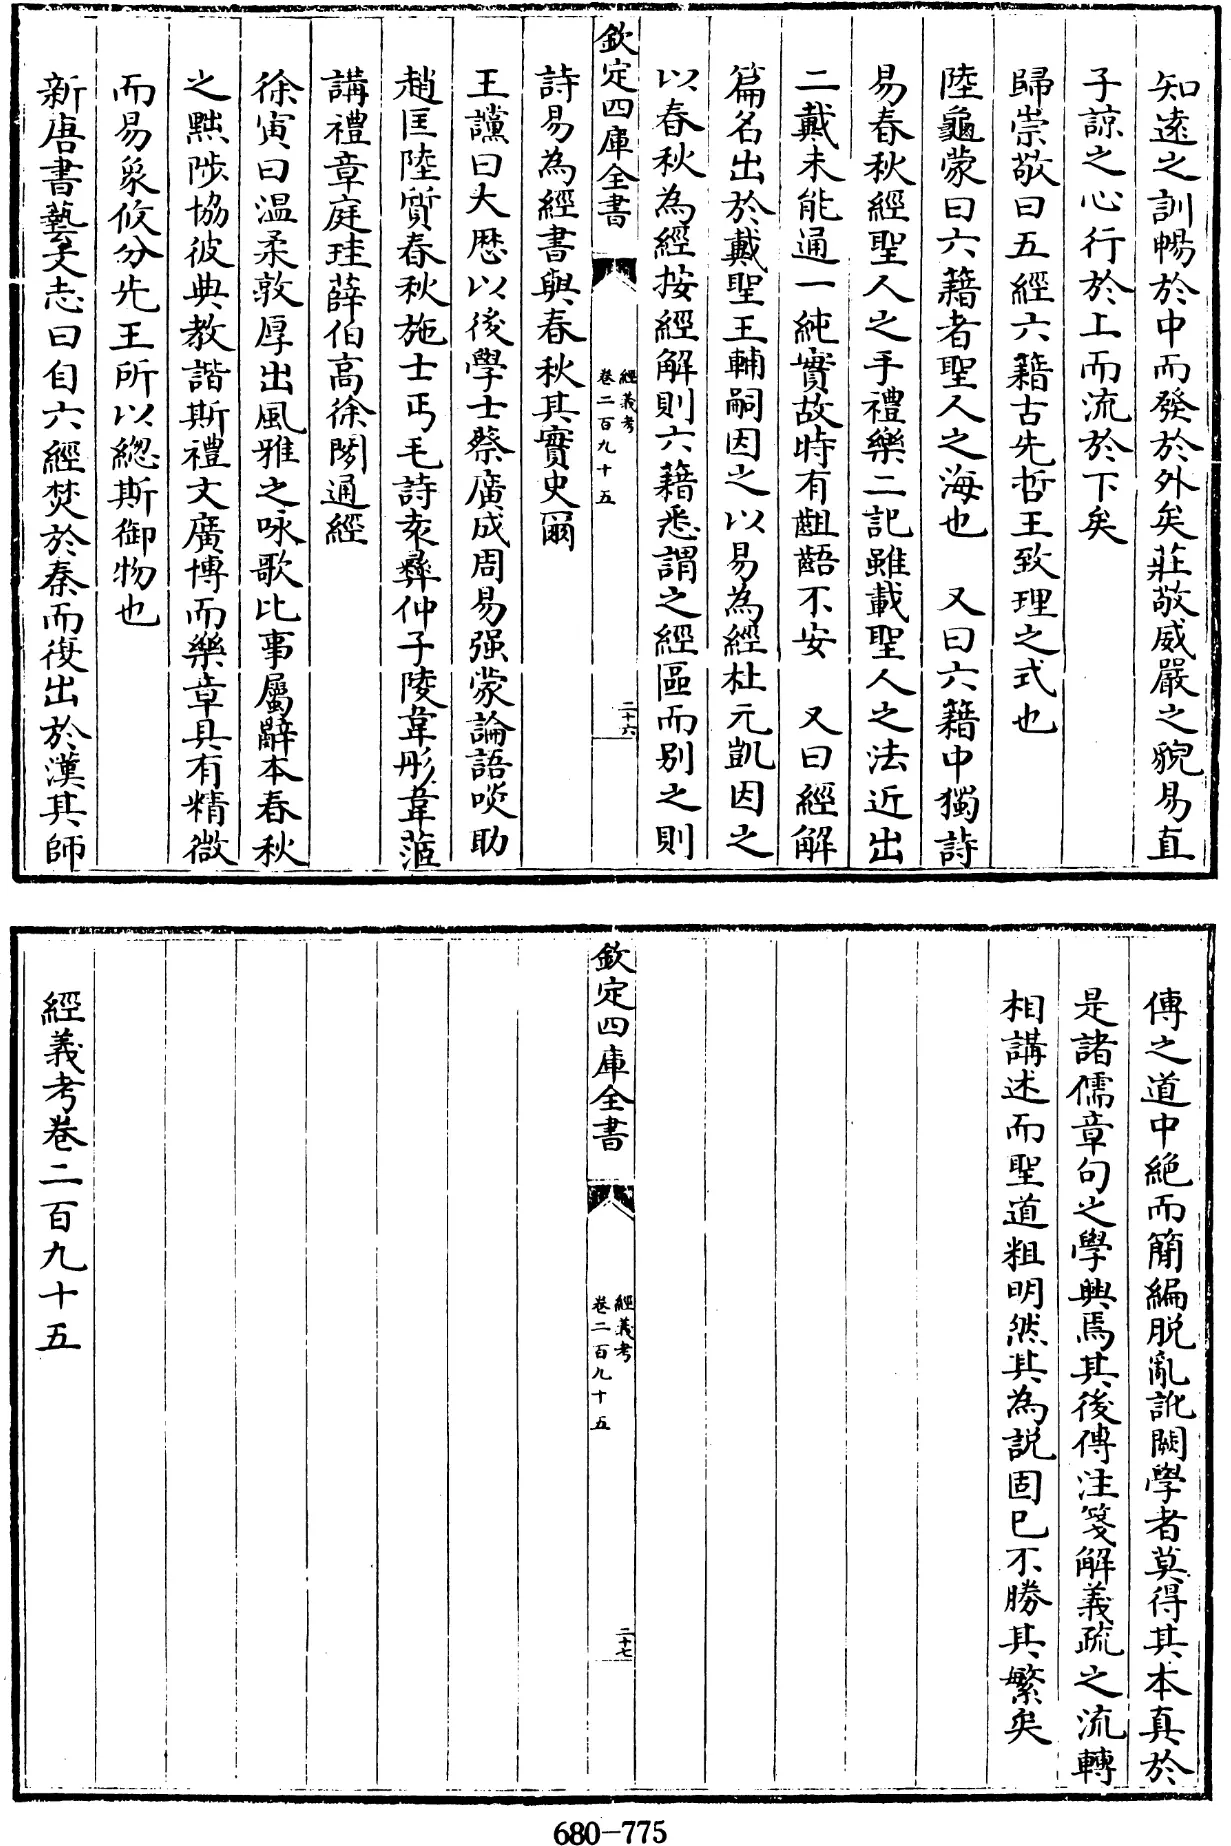 知逺之訓暢於中而發於外矣莊敬威嚴之貌易直
子諒之心行於上而流於下矣
歸崇敬曰五經六籍古先哲王致理之式也
陸龜蒙曰六籍者聖人之海也　又曰六籍中獨詩
易春秋經聖人之手禮樂二記雖載聖人之法近出
二戴未能通一純實故時有齟齬不安　又曰經解
篇名出於戴聖王輔嗣因之以易為經杜元凱因之
以春秋為經按經解則六籍悉謂之經區而别之則
欽定四庫全書
經義考
卷二百九十五
二十六
詩易為經書與春秋其實史爾
王讜曰大厯以後學士蔡廣成周易强蒙論語啖助
趙匡陸質春秋施士丐毛詩袁彛仲子陵韋彤韋茝
講禮章庭珪薛伯高徐閏通經
徐寅曰温柔敦厚出風雅之咏歌比事屬辭本春秋
之黜陟協彼典教諧斯禮文廣博而樂章具有精微
而易象攸分先王所以緫斯御物也
新唐書藝文志曰自六經焚於秦而復出於漢其師
傳之道中絶而簡編脱亂訛闕學者莫得其本真於
是諸儒章句之學興焉其後傳注箋解義疏之流轉
相講述而聖道粗明然其為説固已不勝其繁矣
欽定四庫全書
經義考
卷二百九十五
二十七
經義考卷二百九十五
680-775